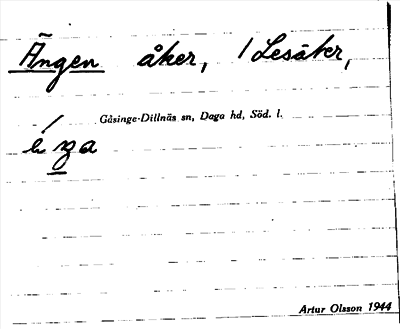 Ängen åker, 1 Lesäter,
Gåsinge-Dillnäs sn, Daga hd, Söd. l.
Artur Olsson 1944